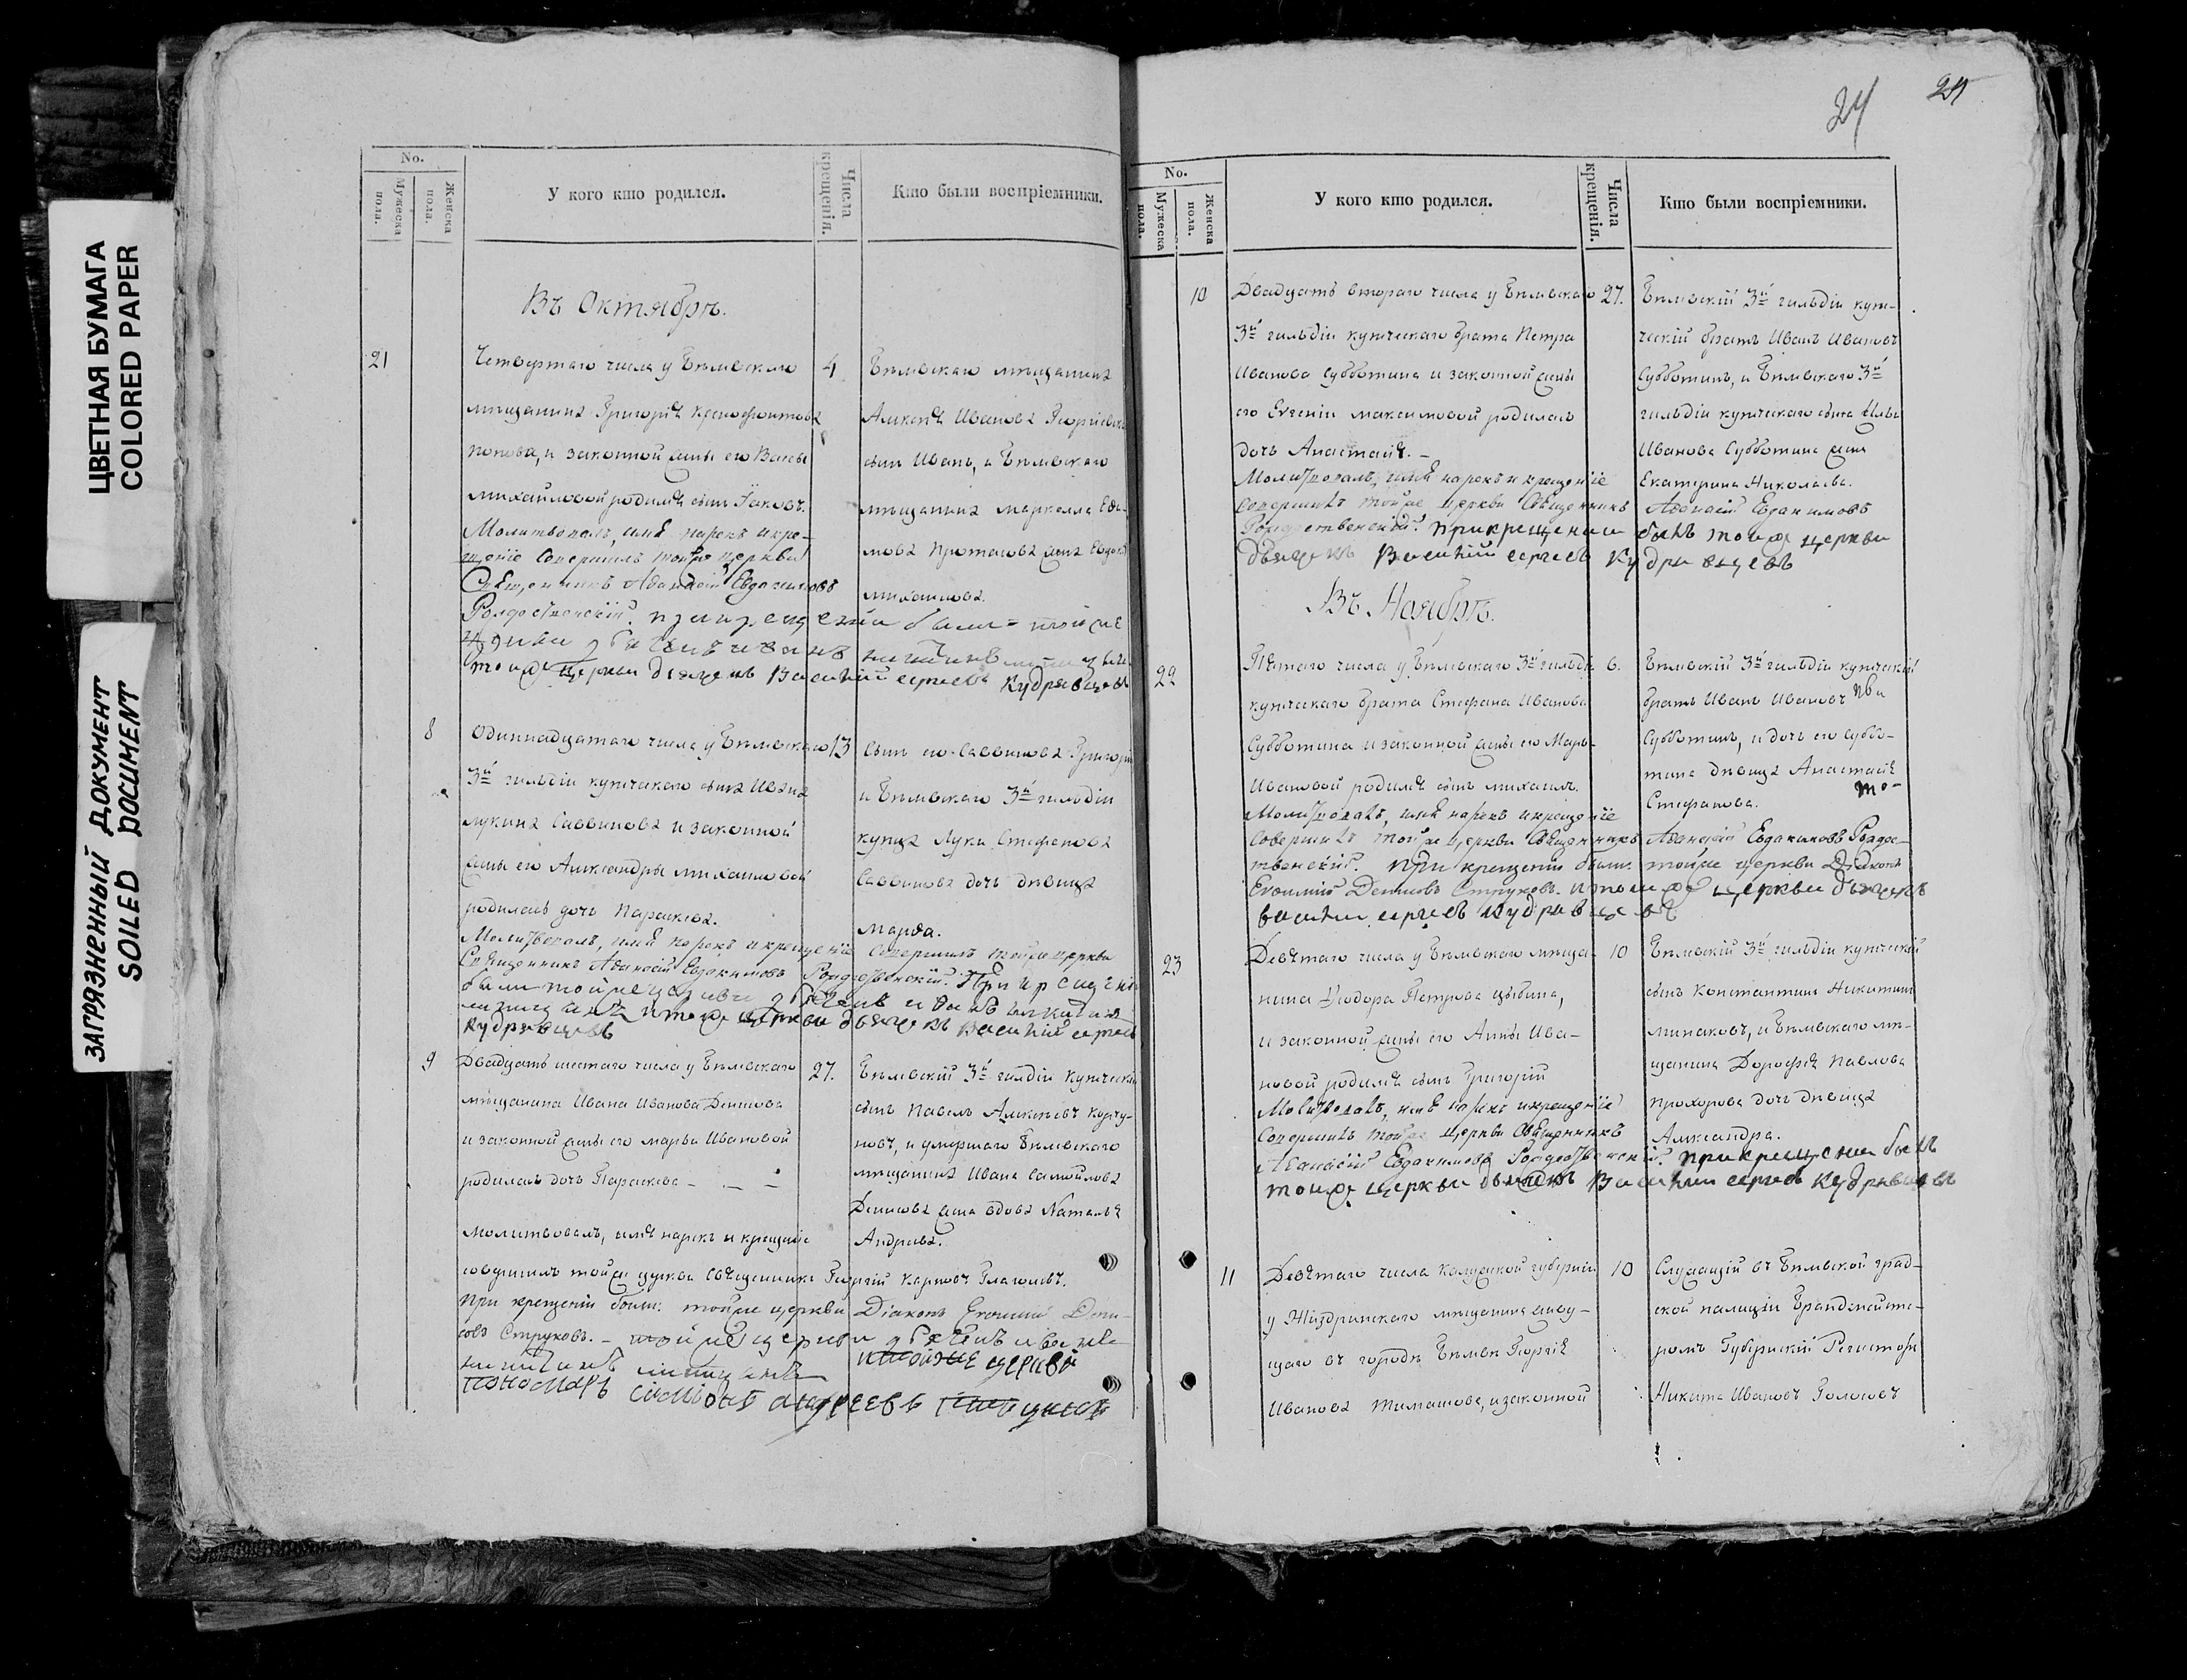 ЦВЕТНАЯ БУМАГА
COLORED PAPER
ЗАГРЯЗНЕННЫЙ ДОКУМЕНТ
SOILED DOCUMENT
No.
Мужеска пола.
Женска пола.
У кого кто родился.
Числа крещенія.
Кто были воспріемники.
Въ Октябрѣ.
21
Четвертаго числа у Бѣлевскаго
мѣщанина Григорія Ксенофонтова
Попова, и законной жены его Вассы
Михайловой родился сынъ Іаковъ.
Молитвовалъ, имя нарекъ и кре-
щеніе совершилъ тойже церкви
Священникъ Аѳанасій Евдокимовъ
Рождественскій.
тойже церкви дьячекъ Василий сергѣевъ Кудрявцовъ
4
Бѣлевскаго мѣщанина
Алексѣя Иванова
сынъ Иванъ, и Бѣлевскаго
мѣщанина Маркелла
Протасова жена
Михайлова.
8
Одиннадцатаго числа у Бѣлевскаго
3й гильдіи купеческаго сына Ивана
Лукина Саввинова и законной
жены его Александры Михайловой
родилась дочь Параскева.
Молитвовалъ, имя нарекъ и крещеніе совершилъ тойже церкви
Священникъ Аѳанасій Евдокимовъ Рождественскій. При крещеніи
были тойже церкви
тойже церкви дьячекъ Василий сергѣевъ
Кудрявцовъ
13
Сынъ его Саввинова Григорій
и Бѣлевскаго 3й гильдіи
купца Луки Стефанова
Саввинова дочь дѣвица
Марѳа.
9
Двадцать шестаго числа у Бѣлевскаго
мѣщанина Ивана Иванова Денисова
и законной жены его Марьи Ивановой
родилась дочь Параскева
Молитвовалъ, имя нарекъ и крещеніе
совершилъ тойже церкви Священникъ Георгій Карповъ Глаголевъ.
При крещеніи были: тойже церкви Діаконъ Евѳимій Дени-
совъ Струковъ. тойже церкви
тойже церкви
пономарь андреевъ
27.
Бѣлевскій 3й гилдіи купеческій
сынъ Павелъ Алексѣевъ
новъ, и умершаго Бѣлевскаго
мѣщанина Ивана Самойлова
Денисова жена вдова Наталья
Андреева.
24
24
No.
Мужеска пола.
Женска пола.
У кого кто родился.
Числа крещенія.
Кто были воспріемники.
10
Двадцать втораго числа у Бѣлевскаго
3й гильдіи купеческаго брата Петра
Иванова Субботина и законной жены
его Евгеніи Максимовой родилась
дочь Анастасія.
Молитвовалъ, имя нарекъ и крещеніе
совершилъ тойже церкви Священникъ Аѳанасій Евдокимовъ
Рождественскій. При крещении былъ тойже церкви
дьячекъ Василий сергѣевъ Кудрявцевъ
27.
Бѣлевскій 3й гильдіи купе-
ческій братъ Иванъ Ивановъ
Субботинъ, и Бѣлевскаго 3й
гильдіи купеческаго сына Ильи
Иванова Субботина жена
Екатерина Николаева.
Въ Ноябрѣ.
22
Пятаго числа у Бѣлевскаго 3й гильдіи
купеческаго брата Стефана Иванова
Субботина и законной жены его Марьи
Ивановой родился сынъ Михаилъ.
Молитвовалъ, имя нарекъ и крещеніе
совершилъ тойже церкви Священникъ Аѳанасій Евдокимовъ Рождес-
твенскій. При крещеніи были: тойже церкви Діаконъ
Евѳимій Денисовъ Струковъ. и тойже церкви дьячекъ
василии сергѣевъ кудрявцовъ
6.
Бѣлевскій 3й гильдіи купеческій
братъ Иванъ Ивановъ
Субботинъ, и дочь его Суббо-
тина дѣвица Анастасія
Стефанова.
23
Девятаго числа у Бѣлевскаго мѣща-
нина Ѳеодора Петрова Цыбина,
и законной жены его Анны Ива-
новой родился сынъ Григорій
Молитвовалъ, имя нарекъ и крещеніе
совершилъ тойже церкви Священникъ
Аѳанасій Евдокимовъ Рождественскій. При крещении былъ
тойже церкви дьячекъ Василии сергѣевъ Кудрявцевъ
10
Бѣлевскій 3й гильдіи купеческій
сынъ Константинъ Никитинъ
Минаковъ, и Бѣлевскаго мѣ-
щанина Дорофея Павлова
Прохорова дочь дѣвица
Александра.
11
Девятаго числа Калужской губерніи
у Жиздринскаго мѣщанина живу-
щаго въ городѣ Бѣлевѣ Георгія
Иванова Тимашова, и законной
10
Служащій въ Бѣлевской град-
ской полиціи Брандмейсте-
ромъ Губернскій Регистраторъ
Никита Ивановъ Голосовъ